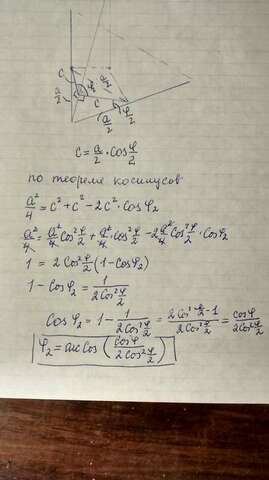 c
a/2
c
φ/2
a/2
c = a/2 · cos φ/2
по теореме косинусов
a²/4 = c² + c² - 2c² · cos φ₂
a²/4 = a²/4 cos² φ/2 + a²/4 cos² φ/2 - 2 a²/4 cos² φ/2 · cos φ₂
1 = 2 cos² φ/2 (1 - cos φ₂)
1 - cos φ₂ = 1/(2cos² φ/2)
cos φ₂ = 1 - 1/(2cos² φ/2) = (2cos² φ/2 - 1)/(2cos² φ/2) = cos φ/(2cos² φ/2)
φ₂ = arccos (cos φ/(2cos² φ/2))